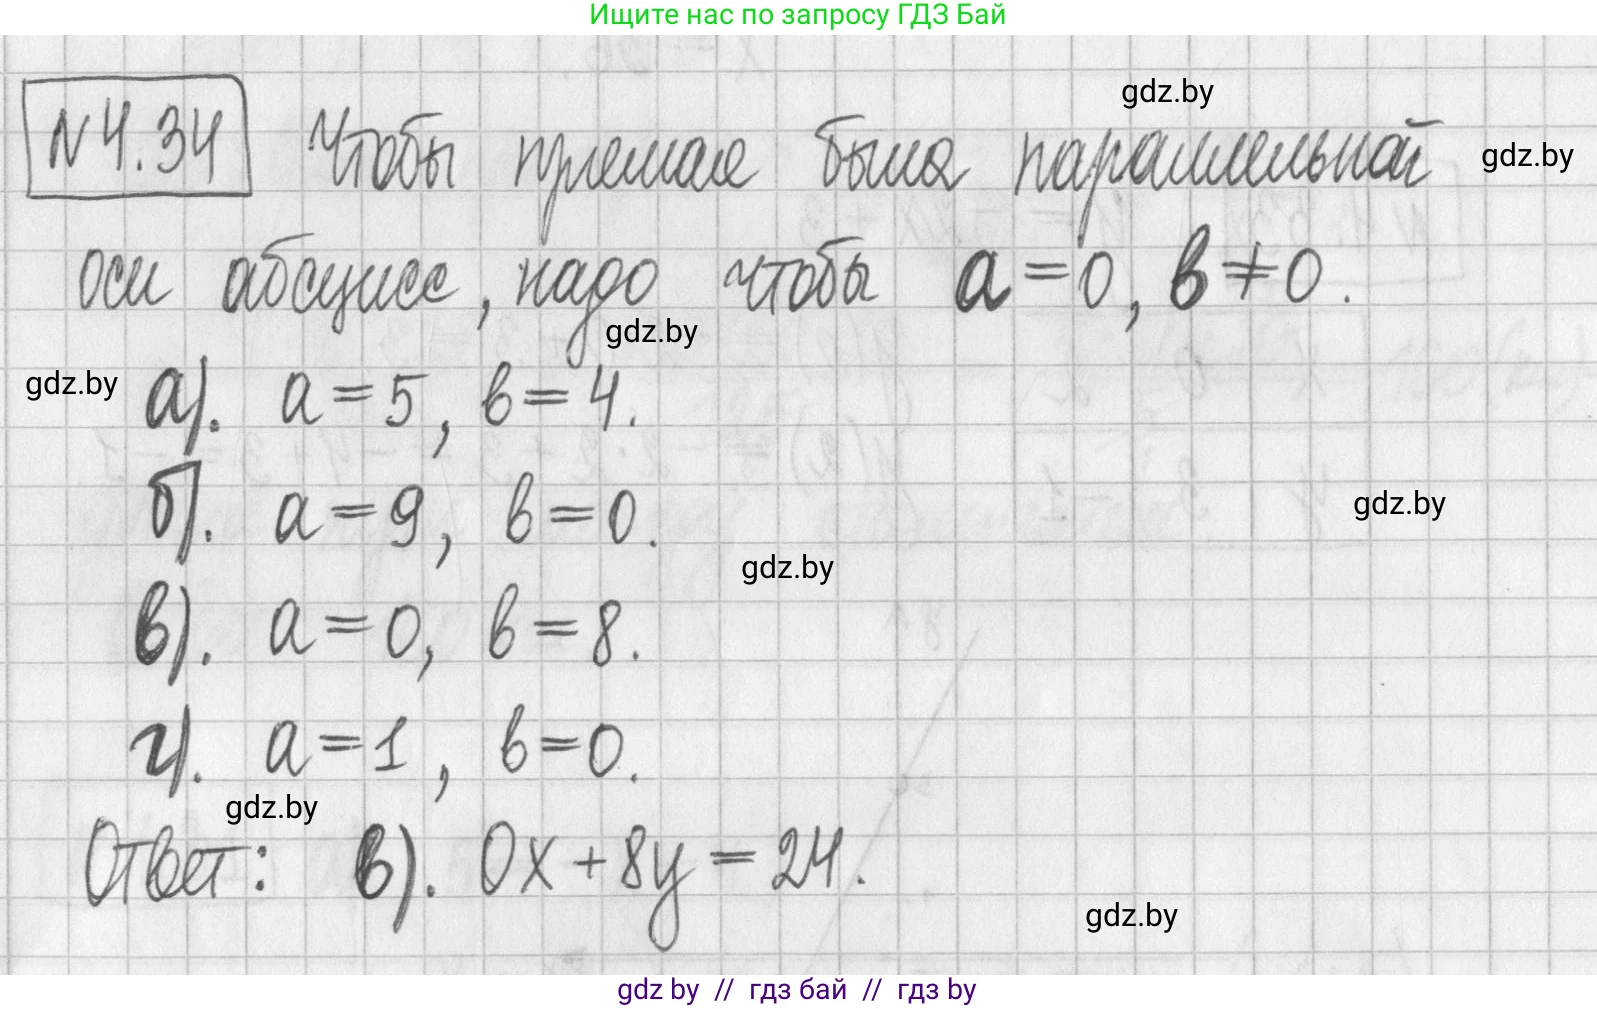 Ищите нас по запросу ГДЗ Бай
gdz.by
N4.34 Чтобы прямая была параллельной
gdz.by
оси абсцисс, надо чтобы a=0, в≠0.
gdz.by
gdz.by
а). a=5, в=4.
б). a=9, в=0.
gdz.by
gdz.by
в). a=0, в=8.
г). a=1, в=0.
gdz.by
Ответ: в). 0x+8y=24.
gdz.by
gdz by // гдз бай // гдз by